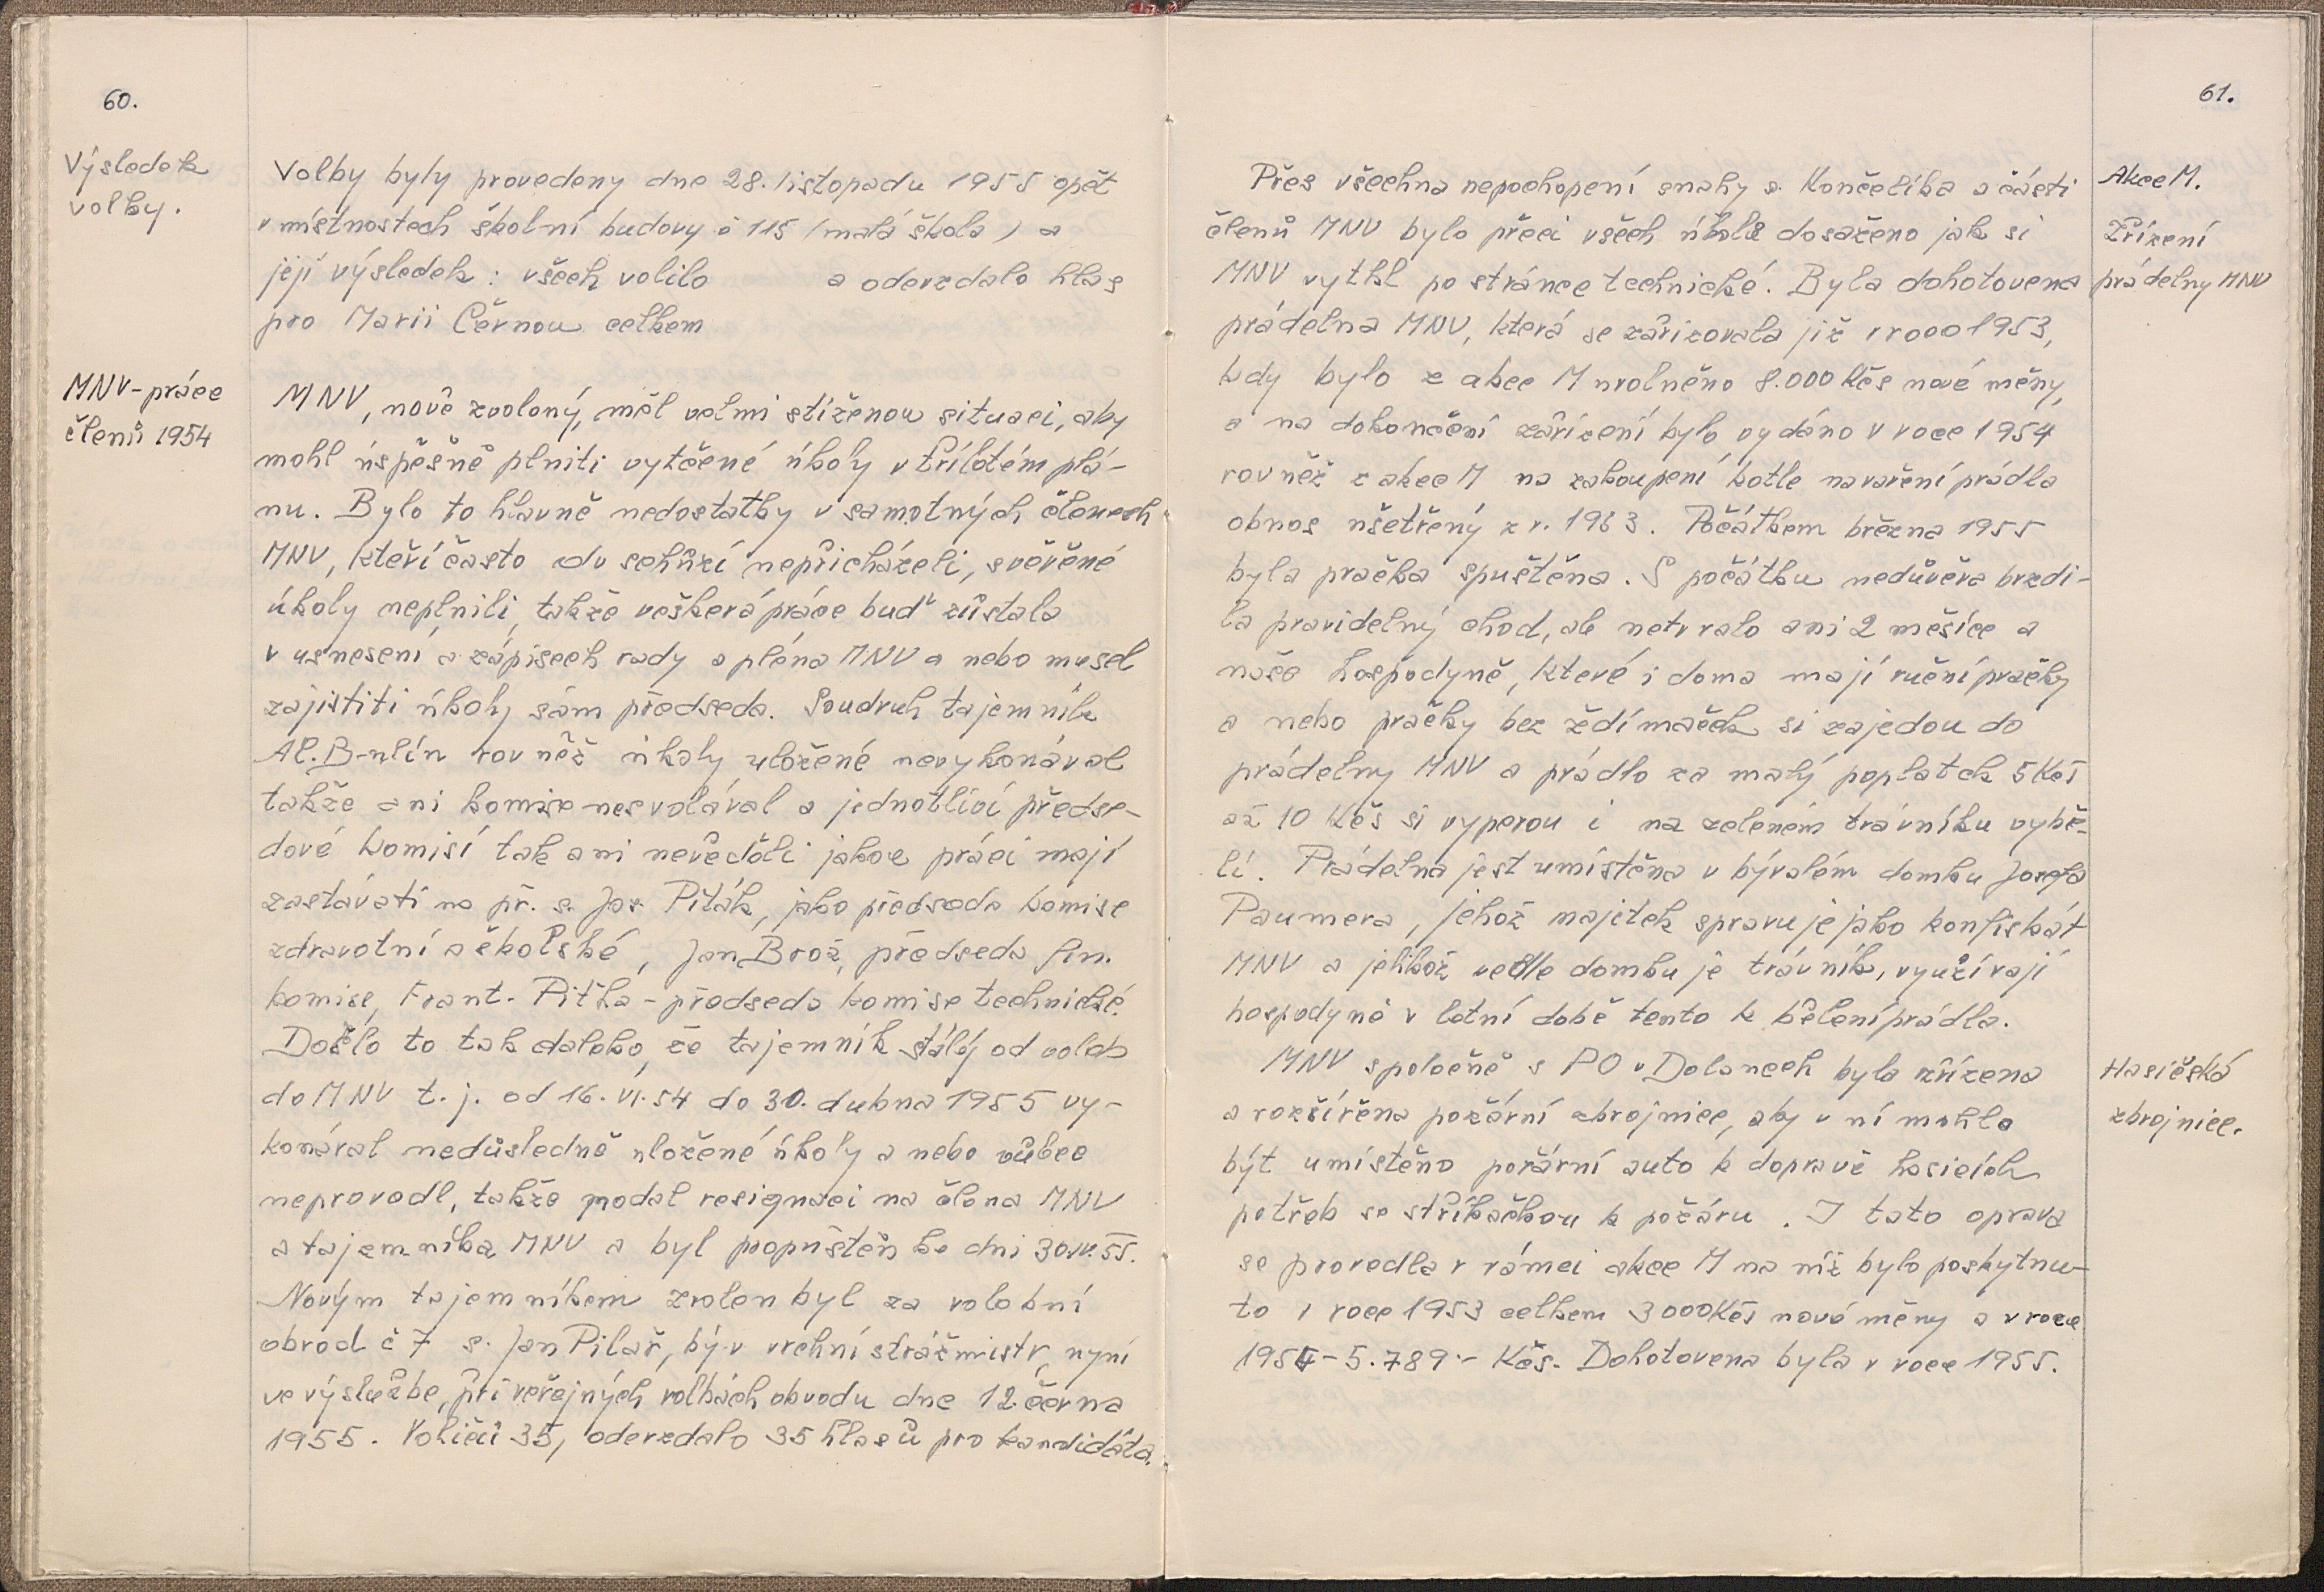 60.
Výsledek
volby.
Volby byly provedeny dne 28. listopadu 1955 opět
v místnostech školní budovy č 115 (malá škola) a
její výsledek: všech volilo a odevzdalo hlas
pro Marii Černou celkem
MNV-práce
členů 1954
MNV, nově zvolený, měl velmi stíženou situaci, aby
mohl úspěšně plniti vytčené úkoly v tříletém plá-
nu. Bylo to hlavně nedostatky v samotných členech
MNV, kteří často do schůzí nepřicházeli, svěřené
úkoly neplnili, takže veškerá práce buď zůstala
v usnesení a zápisech rady a pléna MNV a nebo musel
zajistiti úkoly sám předseda. Soudruh tajemník
Al. B-nlín rovněž úkoly uložené nevykonával
takže ani komise nesvolával a jednotliví předse-
dové komisí tak ani nevěděli jakou práci mají
zastávati na př. s. Jos. Piták, jako předseda komise
zdravotní a školské, Jan Brož, předseda fin.
komise, Frant. Pitka - předseda komise technické.
Došlo to tak daleko, že tajemník stálý od voleb
do MNV t. j. od 16. VI. 54 do 30. dubna 1955 vy-
konával nedůsledně uložené úkoly a nebo vůbec
neprovedl, takže podal resignaci na člena MNV
a tajemníka MNV a byl propuštěn ke dni 30.IV.55.
Novým tajemníkem zvolen byl za volební
obvod č 7 s. Jan Pilař, býv. vrchní strážmistr, nyní
ve výslužbe, při veřejných volbách obvodu dne 12. června
1955. Voličů 35, odevzdalo 35 hlasů pro kandidáta.
61.
Přes všechna nepochopení snahy s. Končelíka a části
členů MNV bylo přeci všech úkolů dosaženo jak si
MNV vytkl po stránce technické. Byla dohotovena
prádelna MNV, která se zařizovala již v roce 1953,
kdy bylo z akce M uvolněno 8.000 Kčs nové měny,
a na dokončení zařízení bylo vydáno v roce 1954
rovněž z akce M na zakoupení kotle na vaření prádla
obnos ušetřený z r. 1963. Počátkem března 1955
byla pračka spuštěna. S počátku nedůvěra brzdi-
la pravidelný chod, ale netrvalo ani 2 měsíce a
naše hospodyně, které i doma mají ruční pračky
a nebo pračky bez ždímaček si zajedou do
prádelny MNV a prádlo za malý poplatek 5 Kčs
až 10 Kčs si vyperou i na zeleném trávníku vybě-
lí. Prádelna jest umístěna v bývalém domku Josefa
Paumera, jehož majetek spravuje jako konfiskát
MNV a jelikož vedle domku je trávník, využívají
hospodyně v letní době tento k bělení prádla.
MNV společně s PO v Dolanech byla zřízena
a rozšířena požární zbrojnice, aby v ní mohlo
být umístěno požární auto k dopravě hasicích
potřeb se stříkačkou k požáru. I tato oprava
se provedla v rámci akce M na níž bylo poskytnu-
to v roce 1953 celkem 3000 Kčs nové měny a v roce
1954 - 5.789.- Kčs. Dohotovena byla v roce 1955.
Akce M.
Zřízení
prádelny MNV
Hasičská
zbrojnice.